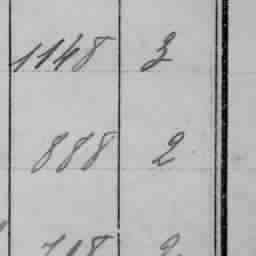 1148 3
888 2